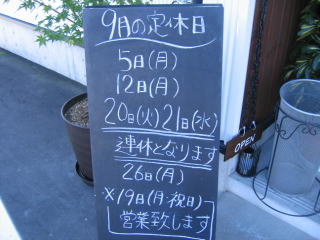 9月の定休日
5日(月)
12日(月)
20日(火)21日(水)
連休となります
26日(月)
※19日(月・祝日)
営業致します
OPEN